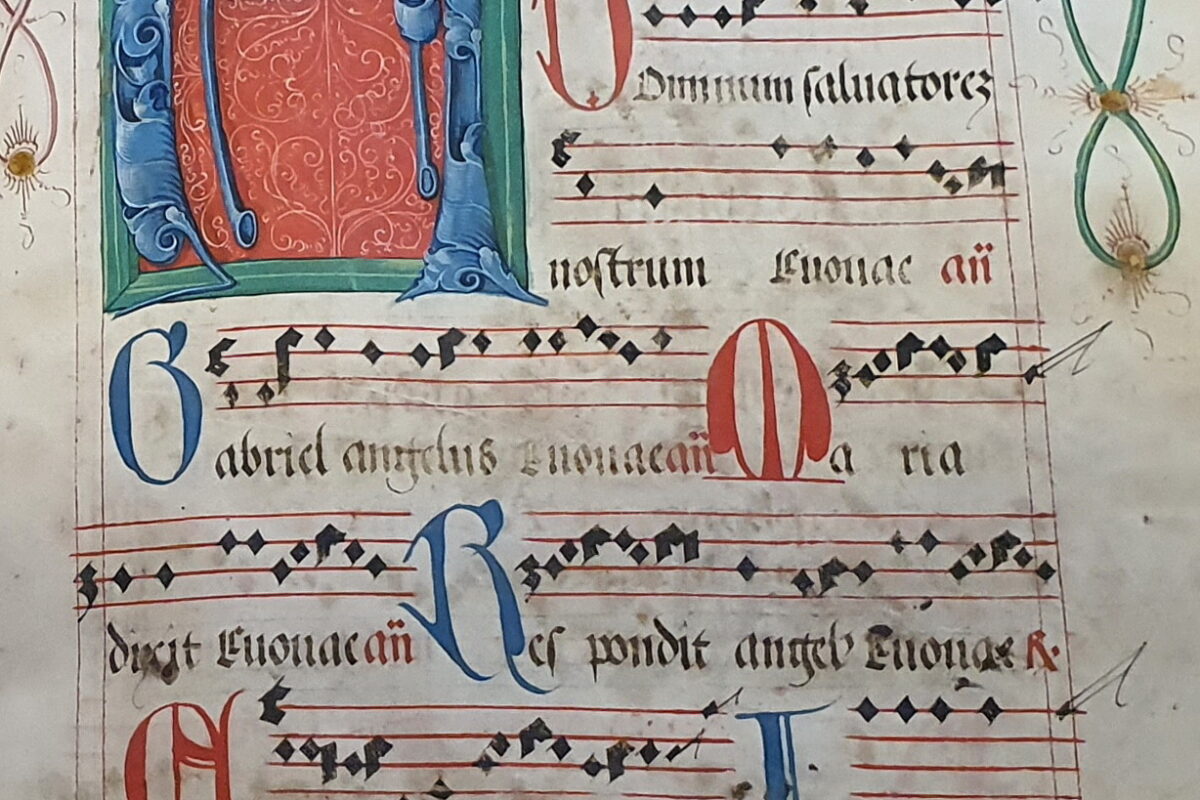 Dominum saluatorez
nostrum Euouae an
Gabriel angelus Euouae an Maria
dixit Euouae an Respondit angel' Euouae R